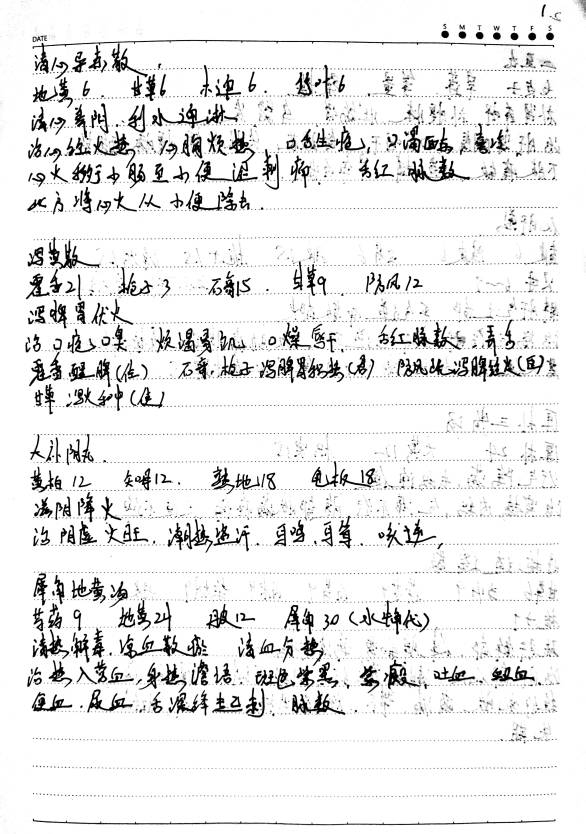 1
DATE
S M T W T F S
清心导赤散
地黄6 甘草6 木通6 竹叶6
清心养阴 利水通淋
治心经火热 心胸烦热 口舌生疮 口渴面赤
心火移行小肠 小便 刺 舌红 脉数
此方将心火从小便除去.
泻黄散
藿香21. 栀子3 石膏15 甘草9 防风12
泻脾胃伏火
治口疮口臭 烦渴胃饥 口燥唇干 舌红脉数 弄舌
藿香醒脾(佐) 石膏,栀子泻脾胃积热(君) 防风 泻脾 (臣)
甘草 和中(佐)
大补阴丸.
黄柏12 知母12. 熟地18 龟板18
滋阴降火
治阴虚火旺, 潮热盗汗. 耳鸣.耳聋. 咳
犀角地黄汤
芍药9 地黄24 丹皮12 犀角30(水牛代)
清热解毒.凉血散瘀 清血分热
治热入营血,身热谵语. 斑色紫黑. 吐血. 衄血.
便血. 尿血. 舌深绛起芒刺. 脉数